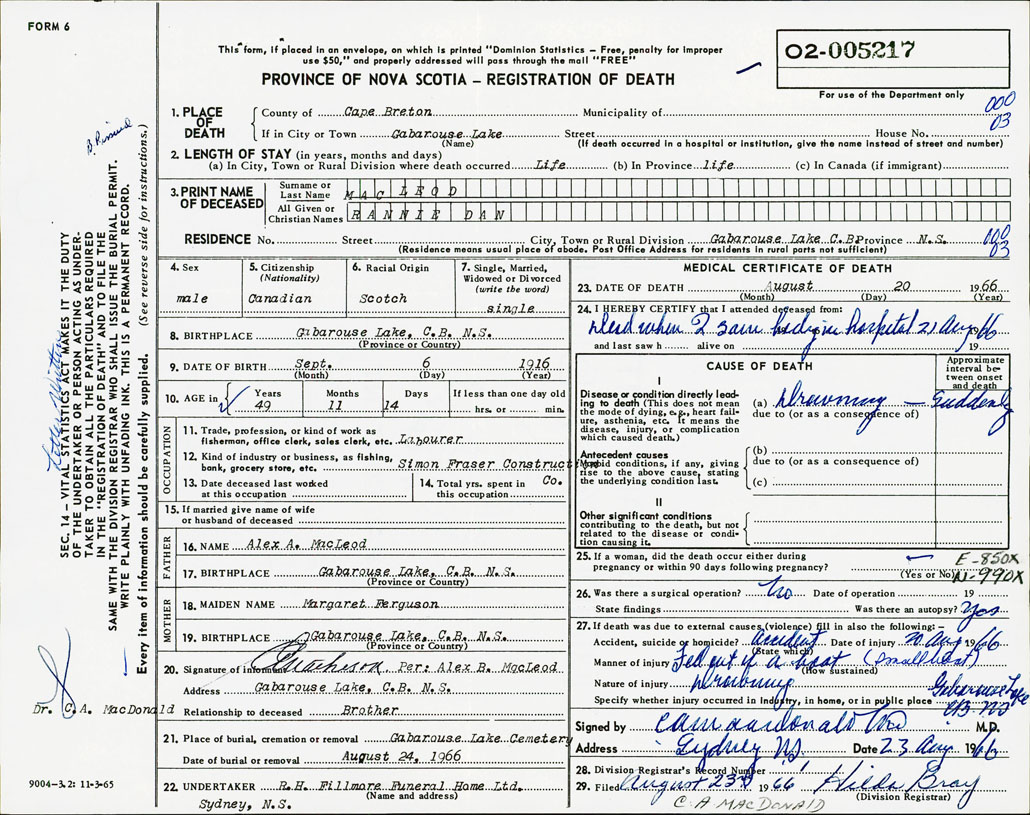 FORM 6
This form, if placed in an envelope, on which is printed "Dominion Statistics – Free, penalty for improper
use $50," and properly addressed will pass through the mail "FREE"
PROVINCE OF NOVA SCOTIA – REGISTRATION OF DEATH
02-005217
For use of the Department only
1. PLACE OF DEATH
County of Cape Breton Municipality of
000
03
If in City or Town Gabarouse Lake Street House No.
(Name) (If death occurred in a hospital or institution, give the name instead of street and number)
2. LENGTH OF STAY (in years, months and days)
(a) In City, Town or Rural Division where death occurred Life (b) In Province life (c) In Canada (if immigrant)
3. PRINT NAME OF DECEASED
Surname or Last Name MAC LEOD
All Given or Christian Names RANNIE DAN
RESIDENCE No. Street City, Town or Rural Division Gabarouse Lake C.B. Province N.S.
(Residence means usual place of abode. Post Office Address for residents in rural parts not sufficient)
000
03
4. Sex
male
5. Citizenship
(Nationality)
Canadian
6. Racial Origin
Scotch
7. Single, Married,
Widowed or Divorced
(write the word)
single
8. BIRTHPLACE Gabarouse Lake, C.B. N.S.
(Province or Country)
9. DATE OF BIRTH Sept. 6 1916
(Month) (Day) (Year)
10. AGE in Years Months Days If less than one day old
49 11 14 hrs. or min.
OCCUPATION
11. Trade, profession, or kind of work as
fisherman, office clerk, sales clerk, etc. Labourer
12. Kind of industry or business, as fishing,
bank, grocery store, etc. Simon Fraser Construction
Co.
13. Date deceased last worked
at this occupation
14. Total yrs. spent in
this occupation
15. If married give name of wife
or husband of deceased
FATHER
16. NAME Alex A. MacLeod
17. BIRTHPLACE Gabarouse Lake, C.B. N.S.
(Province or Country)
MOTHER
18. MAIDEN NAME Margaret Ferguson
19. BIRTHPLACE Gabarouse Lake, C.B. N.S.
(Province or Country)
20. Signature of informant Per: Alex B. MacLeod
Address Gabarouse Lake, C.B. N.S.
Relationship to deceased Brother
21. Place of burial, cremation or removal Gabarouse Lake Cemetery
Date of burial or removal August 24, 1966
22. UNDERTAKER R.H. Fillmore Funeral Home Ltd.
(Name and address)
Sydney, N.S.
MEDICAL CERTIFICATE OF DEATH
23. DATE OF DEATH August 20 1966
(Month) (Day) (Year)
24. I HEREBY CERTIFY that I attended deceased from:
Dead when I saw body in hospital 21 Aug 1966
and last saw h alive on 19
CAUSE OF DEATH
Approximate
interval be-
tween onset
and death
I
Disease or condition directly lead-
ing to death (This does not mean
the mode of dying, e.g., heart fail-
ure, asthenia, etc. It means the
disease, injury, or complication
which caused death.)
(a) Drowning — Suddenly
due to (or as a consequence of)
Antecedent causes
Morbid conditions, if any, giving
rise to the above cause, stating
the underlying condition last.
(b)
due to (or as a consequence of)
(c)
II
Other significant conditions
contributing to the death, but not
related to the disease or condi-
tion causing it.
25. If a woman, did the death occur either during
pregnancy or within 90 days following pregnancy?
(Yes or No)
E-850X
N-990X
26. Was there a surgical operation? No Date of operation 19
State findings Was there an autopsy? Yes
27. If death was due to external causes (violence) fill in also the following:–
Accident, suicide or homicide? accident Date of injury 20 Aug 1966
(State which)
Manner of injury Fell out of a boat (small boat)
(How sustained)
Nature of injury Drowning
Specify whether injury occurred in industry, in home, or in public place Gabarouse Lake
CB. NS
Signed by M.D.
Address Sydney NS Date 23 Aug 1966
28. Division Registrar's Record Number 1
29. Filed August 23rd 1966 Hilda Bray
(Division Registrar)
C. A MACDONALD
B. 
SEC. 14 – VITAL STATISTICS ACT MAKES IT THE DUTY
OF THE UNDERTAKER OR PERSON ACTING AS UNDER-
TAKER TO OBTAIN ALL THE PARTICULARS REQUIRED
IN THE "REGISTRATION OF DEATH" AND TO FILE THE
SAME WITH THE DIVISION REGISTRAR WHO SHALL ISSUE THE BURIAL PERMIT.
WRITE PLAINLY WITH UNFADING INK. THIS IS A PERMANENT RECORD.
Every item of information should be carefully supplied. (See reverse side for instructions.)
Letter Written
Dr. C.A. MacDonald
9004-3.2: 11-3-65